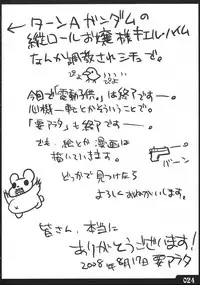 ← ターンAガンダムの
縦ロールお嬢様キエルハイム
なんか調教されシチュで。
ぴよ ぴよ
今回で「電動子供」は終了です──。
心機一転とかそういうことで。
「要アラタ」も終了です──。
でも、絵とか漫画は
描いていきます。
バーン
どっかで見つけたら
よろしくおねがいします。
皆さん、本当に
ありがとうございます!
2008年8月17日 要アラタ
024